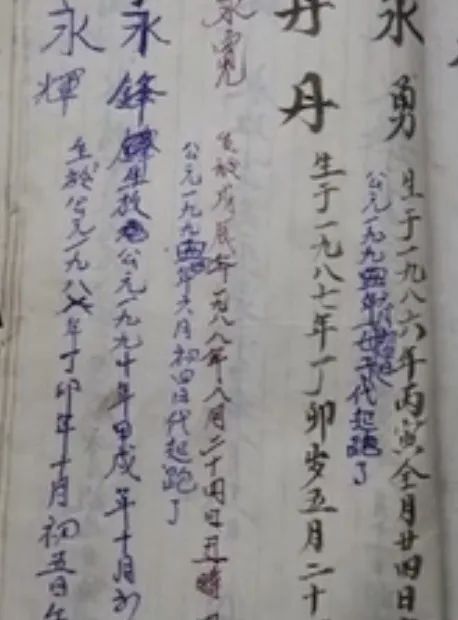 永勇 生于一九八六年丙寅全月廿四日
公元一九九四年 代起跑了
丹丹 生于一九八七年丁卯岁五月二十
永 生於戊辰年一九八八年八月二十四日丑時
公元一九九四年六月初四 代起跑了
永鋒 生於 公元一九九 年甲戌年十月初
永輝 生於公元一九八 年丁卯年十月初五日午